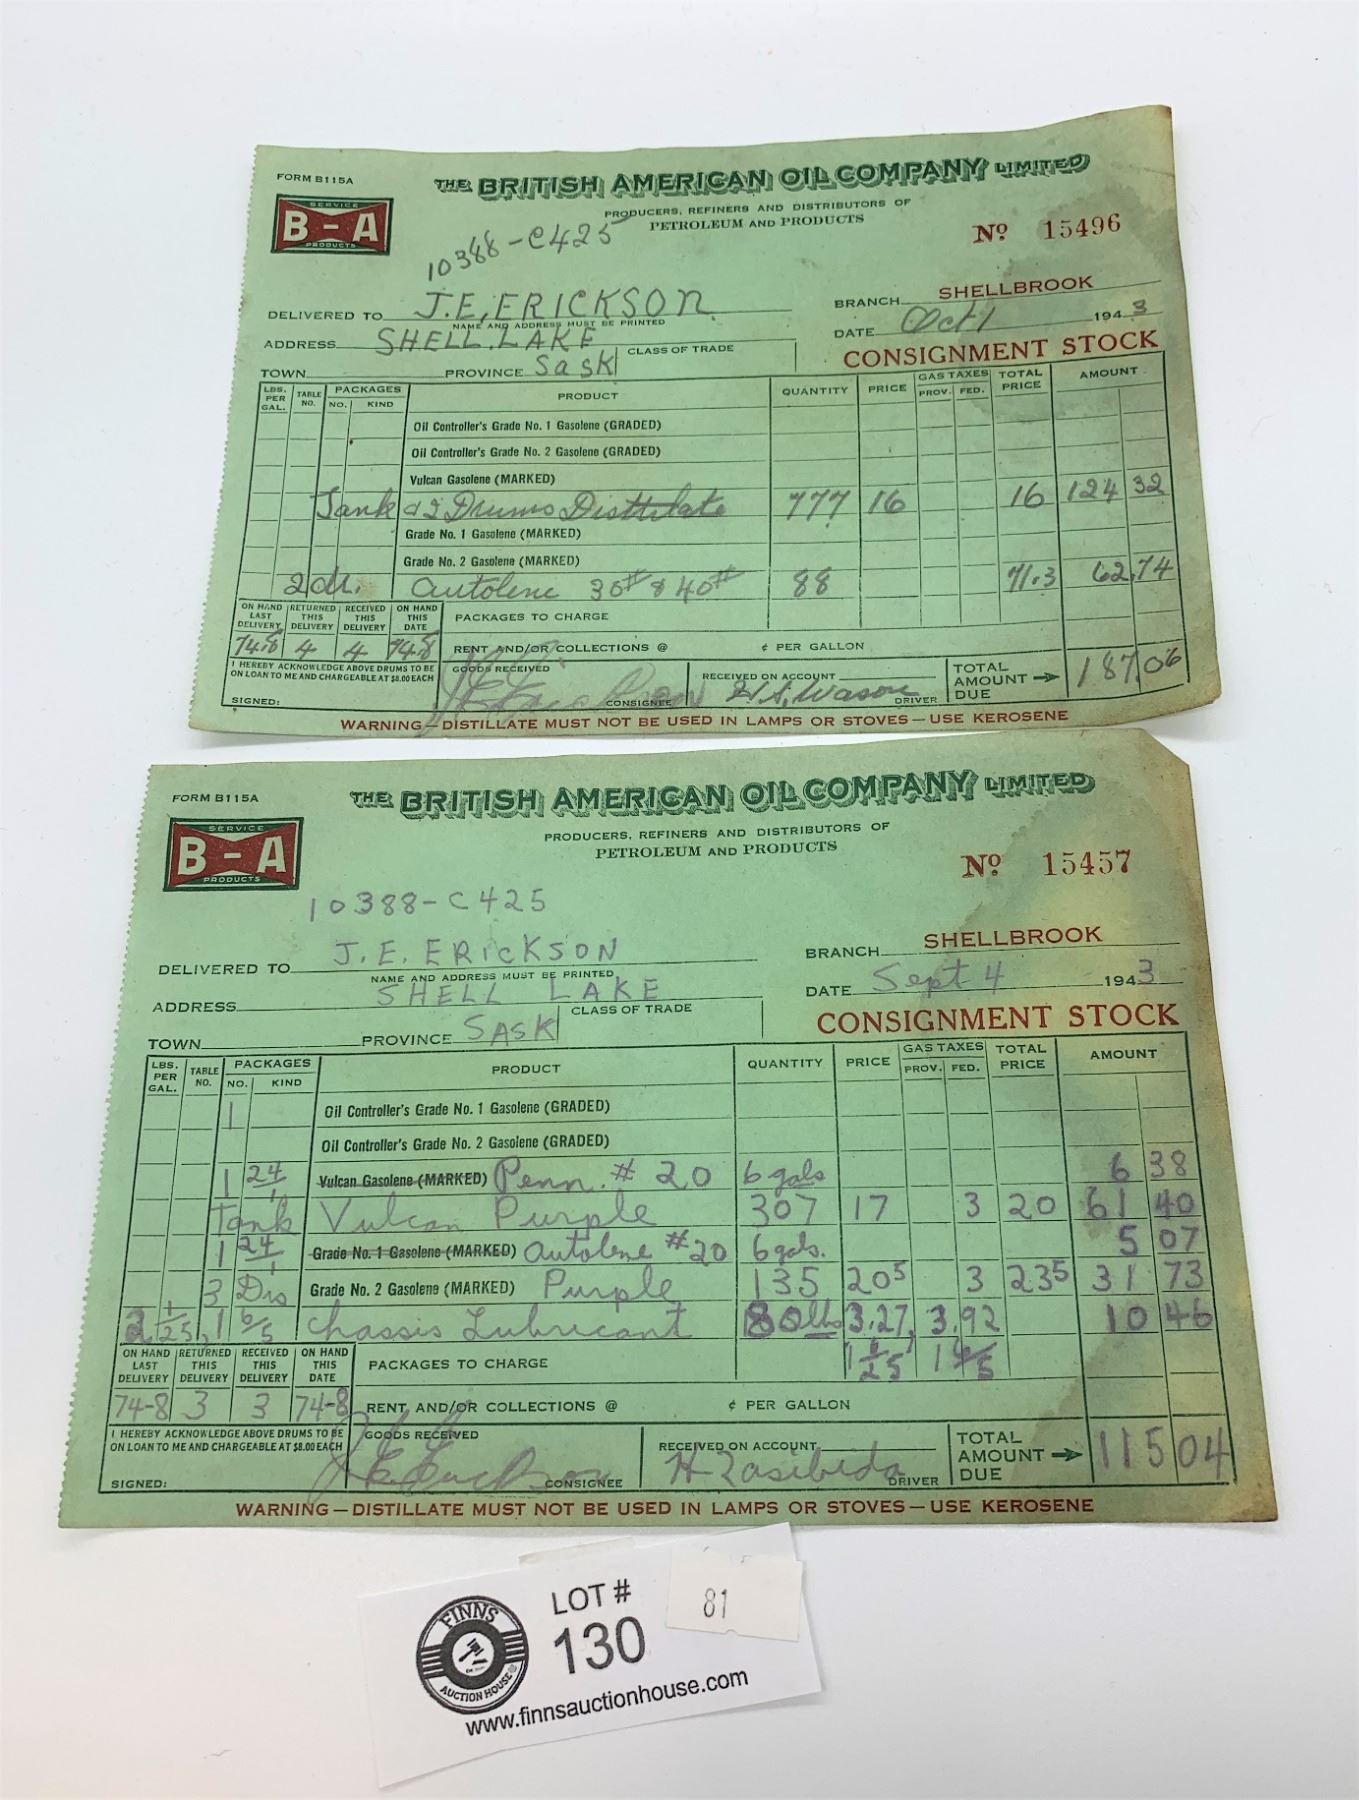 FORM B115A
THE BRITISH AMERICAN OIL COMPANY LIMITED
SERVICE
B-A
PRODUCTS
PRODUCERS, REFINERS AND DISTRIBUTORS OF
PETROLEUM AND PRODUCTS
Nº 15496
10388-C425
DELIVERED TO J.E. ERICKSON
NAME AND ADDRESS MUST BE PRINTED
BRANCH SHELLBROOK
ADDRESS SHELL LAKE
DATE Oct 1 1943
CLASS OF TRADE
TOWN PROVINCE Sask
CONSIGNMENT STOCK
LBS. PER GAL. TABLE NO. PACKAGES NO. KIND PRODUCT QUANTITY PRICE GAS TAXES PROV. FED. TOTAL PRICE AMOUNT
Oil Controller's Grade No. 1 Gasolene (GRADED)
Oil Controller's Grade No. 2 Gasolene (GRADED)
Vulcan Gasolene (MARKED)
Tank & 2 Drums Distillate 777 16 16 124 32
Grade No. 1 Gasolene (MARKED)
Grade No. 2 Gasolene (MARKED)
2 dr. Autolene 30# & 40# 88 71.3 62.74
ON HAND LAST DELIVERY RETURNED THIS DELIVERY RECEIVED THIS DELIVERY ON HAND THIS DATE
PACKAGES TO CHARGE
74-8 4 4 74-8
RENT AND/OR COLLECTIONS @ ¢ PER GALLON
I HEREBY ACKNOWLEDGE ABOVE DRUMS TO BE
ON LOAN TO ME AND CHARGEABLE AT $8.00 EACH
GOODS RECEIVED
J E Erickson
CONSIGNEE
RECEIVED ON ACCOUNT
DRIVER
TOTAL AMOUNT DUE 187.06
SIGNED:
WARNING—DISTILLATE MUST NOT BE USED IN LAMPS OR STOVES—USE KEROSENE
FORM B115A
THE BRITISH AMERICAN OIL COMPANY LIMITED
SERVICE
B-A
PRODUCTS
PRODUCERS, REFINERS AND DISTRIBUTORS OF
PETROLEUM AND PRODUCTS
Nº 15457
10388-C425
DELIVERED TO J. E. ERICKSON
NAME AND ADDRESS MUST BE PRINTED
BRANCH SHELLBROOK
ADDRESS SHELL LAKE
DATE Sept 4 1943
CLASS OF TRADE
TOWN PROVINCE SASK
CONSIGNMENT STOCK
LBS. PER GAL. TABLE NO. PACKAGES NO. KIND PRODUCT QUANTITY PRICE GAS TAXES PROV. FED. TOTAL PRICE AMOUNT
1 Oil Controller's Grade No. 1 Gasolene (GRADED)
Oil Controller's Grade No. 2 Gasolene (GRADED)
1 24/1 Vulcan Gasolene (MARKED) Penn. # 20 6 gals 6 38
Tank Vulcan Purple 307 17 3 20 61 40
1 24/1 Grade No. 1 Gasolene (MARKED) Autolene #20 6 gals. 5 07
3 Drs Grade No. 2 Gasolene (MARKED) Purple 135 20⁵ 3 23⁵ 31 73
2 1/25, 1 6/5 Chassis Lubricant 80 lbs 3.27, 3.92 10 46
ON HAND LAST DELIVERY RETURNED THIS DELIVERY RECEIVED THIS DELIVERY ON HAND THIS DATE
PACKAGES TO CHARGE
74-8 3 3 74-8
RENT AND/OR COLLECTIONS @ ¢ PER GALLON
I HEREBY ACKNOWLEDGE ABOVE DRUMS TO BE
ON LOAN TO ME AND CHARGEABLE AT $8.00 EACH
GOODS RECEIVED
J E Erickson
CONSIGNEE
RECEIVED ON ACCOUNT
DRIVER
TOTAL AMOUNT DUE 115 04
SIGNED:
WARNING—DISTILLATE MUST NOT BE USED IN LAMPS OR STOVES—USE KEROSENE
FINNS
AUCTION HOUSE
LOT #
130
81
www.finnsauctionhouse.com